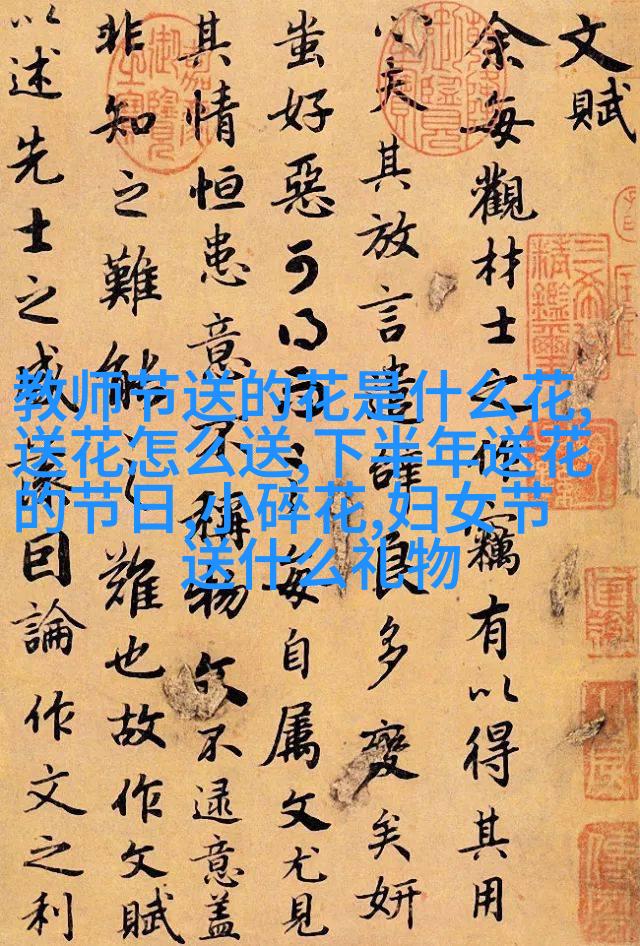 文賦
余每觀材士之作竊有以得其用
心夫其放言遣辭良多變矣妍
蚩好惡可得而言每自屬文尤見
其情恒患意不稱物文不逮意蓋
非知之難能之難也故作文賦
以述先士之盛藻因論作文之利
教师节送的花是什么花,
送花怎么送,下半年送花
的节日,小碎花,妇女节
送什么礼物